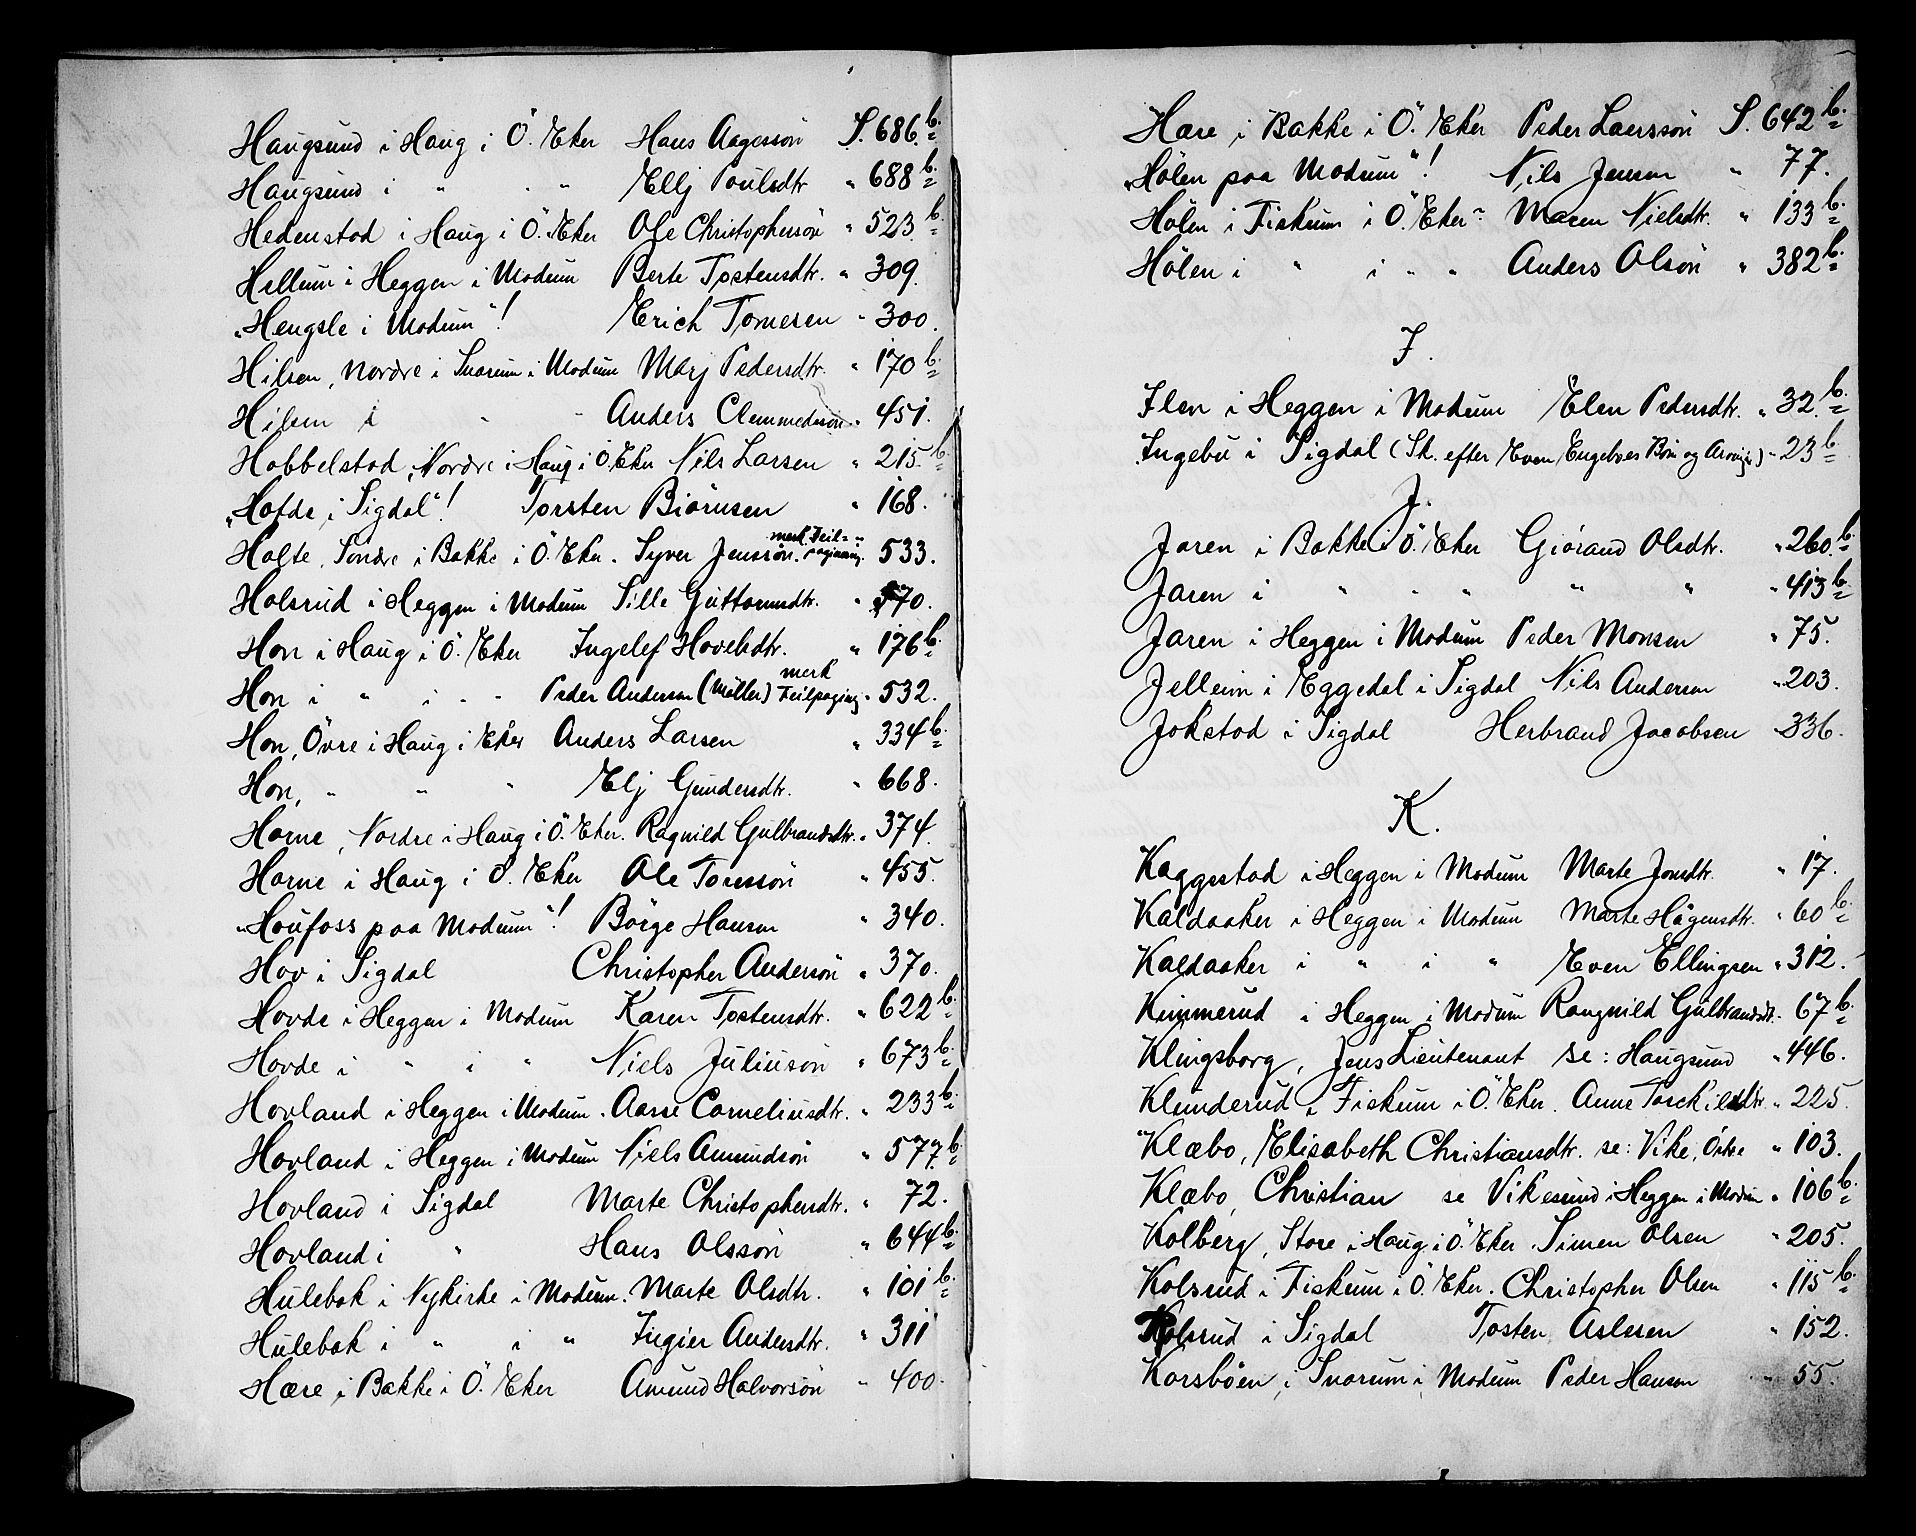 Haugsund i Haug i Ö. Eker Hans Aagesson S. 686 b.
Haugsund i " " " Ellj Poulsdtr " 688 b.
Hedenstad i Haug i Ö. Eker Ole Christophersön " 523 b.
Hellum i Heggen i Modum Berte Tostensdtr. " 309.
"Hengsle i Modum"! Erich Tomesen " 300.
Hilsen, Nordre i Snarum i Modum Marj Pedersdtr. " 170 b.
Hilsen i " " Anders Clemmedsøn " 451.
Hobbelstad, Nordre i Haug i Ö. Eker Nils Larsen " 215 b.
"Hofde i Sigdal"! Torsten Biørnsen " 168.
Holte, Søndre i Bakke i Ö. Eker. Syver Jenssøn. merk Feil-paginering. 533.
Holsrud i Heggen i Modum Sille Guttormsdtr. " 570.
Hon i Haug i Ö. Eker Ingelef Hovelsdtr. " 176 b.
Hon i " i " " Peder Andersen (Møller) merk Feilpaging. " 532.
Hon, Övre i Haug i Eker Anders Larsen " 334 b.
Hon, " " " Elj Gundersdtr. " 668.
Horne, Nordre i Haug i Ö. Eker. Ragnild Gulbrandsdtr. " 374.
Horne i Haug i Ö. Eker Ole Toresson " 455.
"Houfoss paa Modum"! Börge Hansen " 340.
Hov i Sigdal Christopher Andersön " 370.
Hovde i Heggen i Modum Karen Tostensdtr. " 622 b.
Hovde i " i " Niels Juliusön " 673 b.
Hovland i Heggen i Modum. Aasse Corneliusdtr. " 233 b.
Hovland i Heggen i Modum Niels Amundsön " 577 b.
Hovland i Sigdal Marte Christophersdtr. " 72.
Hovland i " Hans Olssön " 644 b.
Hulebak i Nykirke i Modum. Marte Olsdtr. " 101 b.
Hulebak i " i " Ingier Andersdtr. " 311
Hære i Bakke i Ö. Eker Amund Halvorsön " 400.
Hære i Bakke i Ö. Eker Peder Laerssön S. 642 b.
"Hölen paa Modum"! Nils Jensen " 77.
Hölen i Fiskum i Ö. Eker Maren Nielsdtr. " 133 b.
Hölen i " i " " Anders Olsön " 382 b.
I.
Ilen i Heggen i Modum Elen Pedersdtr. " 32 b.
Ingebu i Sigdal (Sk. efter Even Engebøes Børn og Arvinger) " 23 b.
J.
Jaren i Bakke i Ö. Eker Giörand Olsdtr. " 260 b.
Jaren i " " " " " " 413 b.
Jaren i Heggen i Modum Peder Monsen " 75.
Jelleim i Eggedal i Sigdal Nils Andersen " 203.
Jokstad i Sigdal Herbrand Jacobsen " 336.
K.
Kaggestad i Heggen i Modum Marte Jonsdtr. " 17.
Kaldaaker i Heggen i Modum Marte Hågensdtr. " 60 b.
Kaldaaker i " i " Even Ellingsen " 312.
Kimmerud i Heggen i Modum Rangnild Gulbrandsdtr. " 67 b.
Klingsborg, Jens Lieutenant se: Haugsund " 446.
Klunderud i Fiskum i Ö. Eker. Anne Torckildsdtr. " 225.
"Klæbo, Elisabeth Christiansdtr. se: Vike, Östre " 103.
Klæbo, Christian se Vikesund i Heggen i Modum " 106 b.
Kolberg, Store i Haug i Ö. Eker. Simen Olsen " 205.
Kolsrud i Fiskum i Ö. Eker. Christopher Olsen " 115 b.
Kolsrud i Sigdal Tosten Aslesen " 152.
Korsböen i Snarum i Modum Peder Hansen " 55.